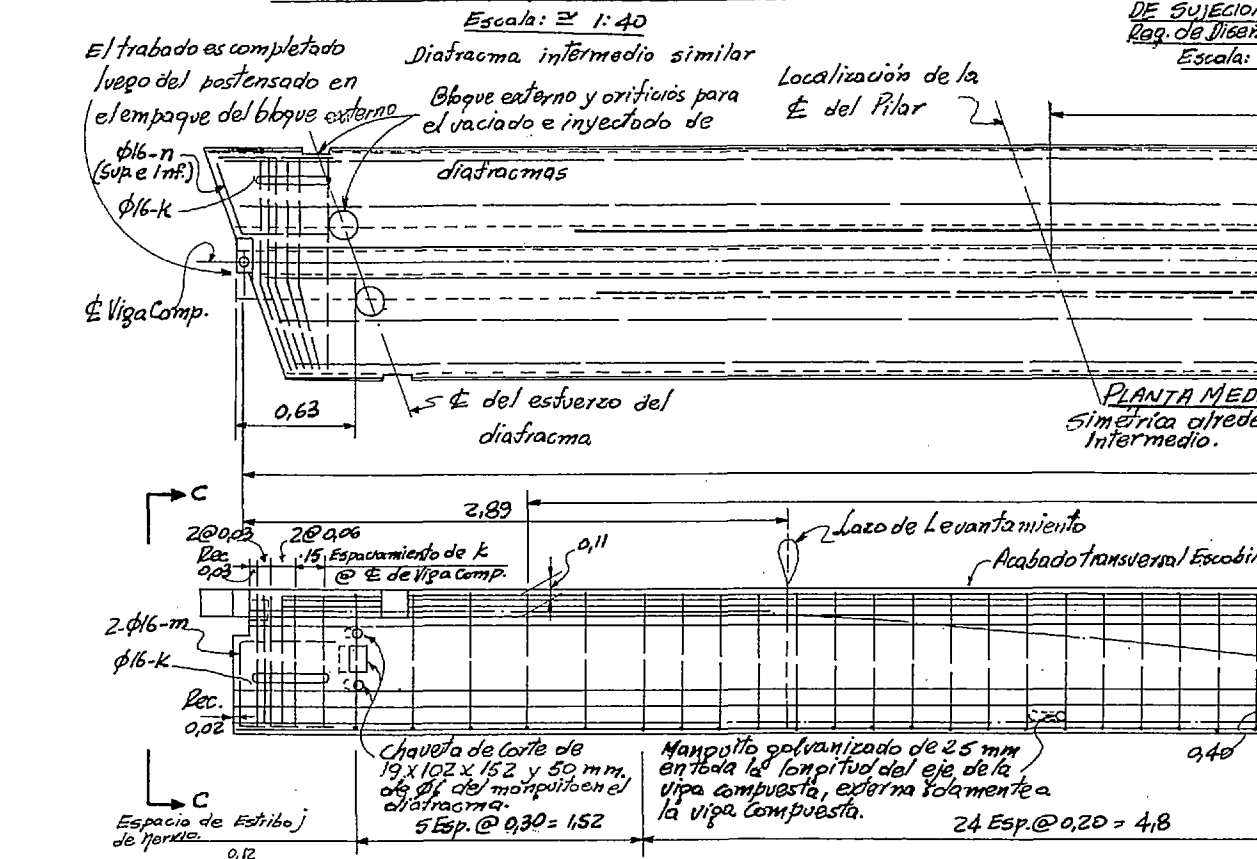 Escala: ≅ 1:40
Diafracma intermedio similar
DE SUJECIO
Req. de Diseñ
Escala:
El trabado es completado
luego del postensado en
el empaque del bloque externo
Bloque externo y orificios para
el vaciado e inyectado de
diafracmas
Localización de la
℄ del Pilar
ϕ16-n
(Sup. e Inf.)
ϕ16-k
℄ Viga Comp.
0,63
℄ del esfuerzo del
diafracma
PLANTA MED
Simétrica alrede
Intermedio.
C
2,89
2@0,03 2@0,06
Rec.
0,03
.15 Espaciamiento de k
@ ℄ de Viga Comp.
0,11
Lazo de Levantamiento
Acabado transversal Escobi
2-ϕ16-m
ϕ16-k
Rec.
0,02
Chaveta de Corte de
19 x 102 x 152 y 50 mm.
de ϕi del manguito en el
diafracma.
Manguito galvanizado de 25 mm
en toda la longitud del eje de la
viga compuesta, externa solamente a
la viga compuesta.
0,40
C
Espacio de Estribo j
de nervio.
0,12
5 Esp. @ 0,30 = 1,52
24 Esp. @ 0,20 = 4,8